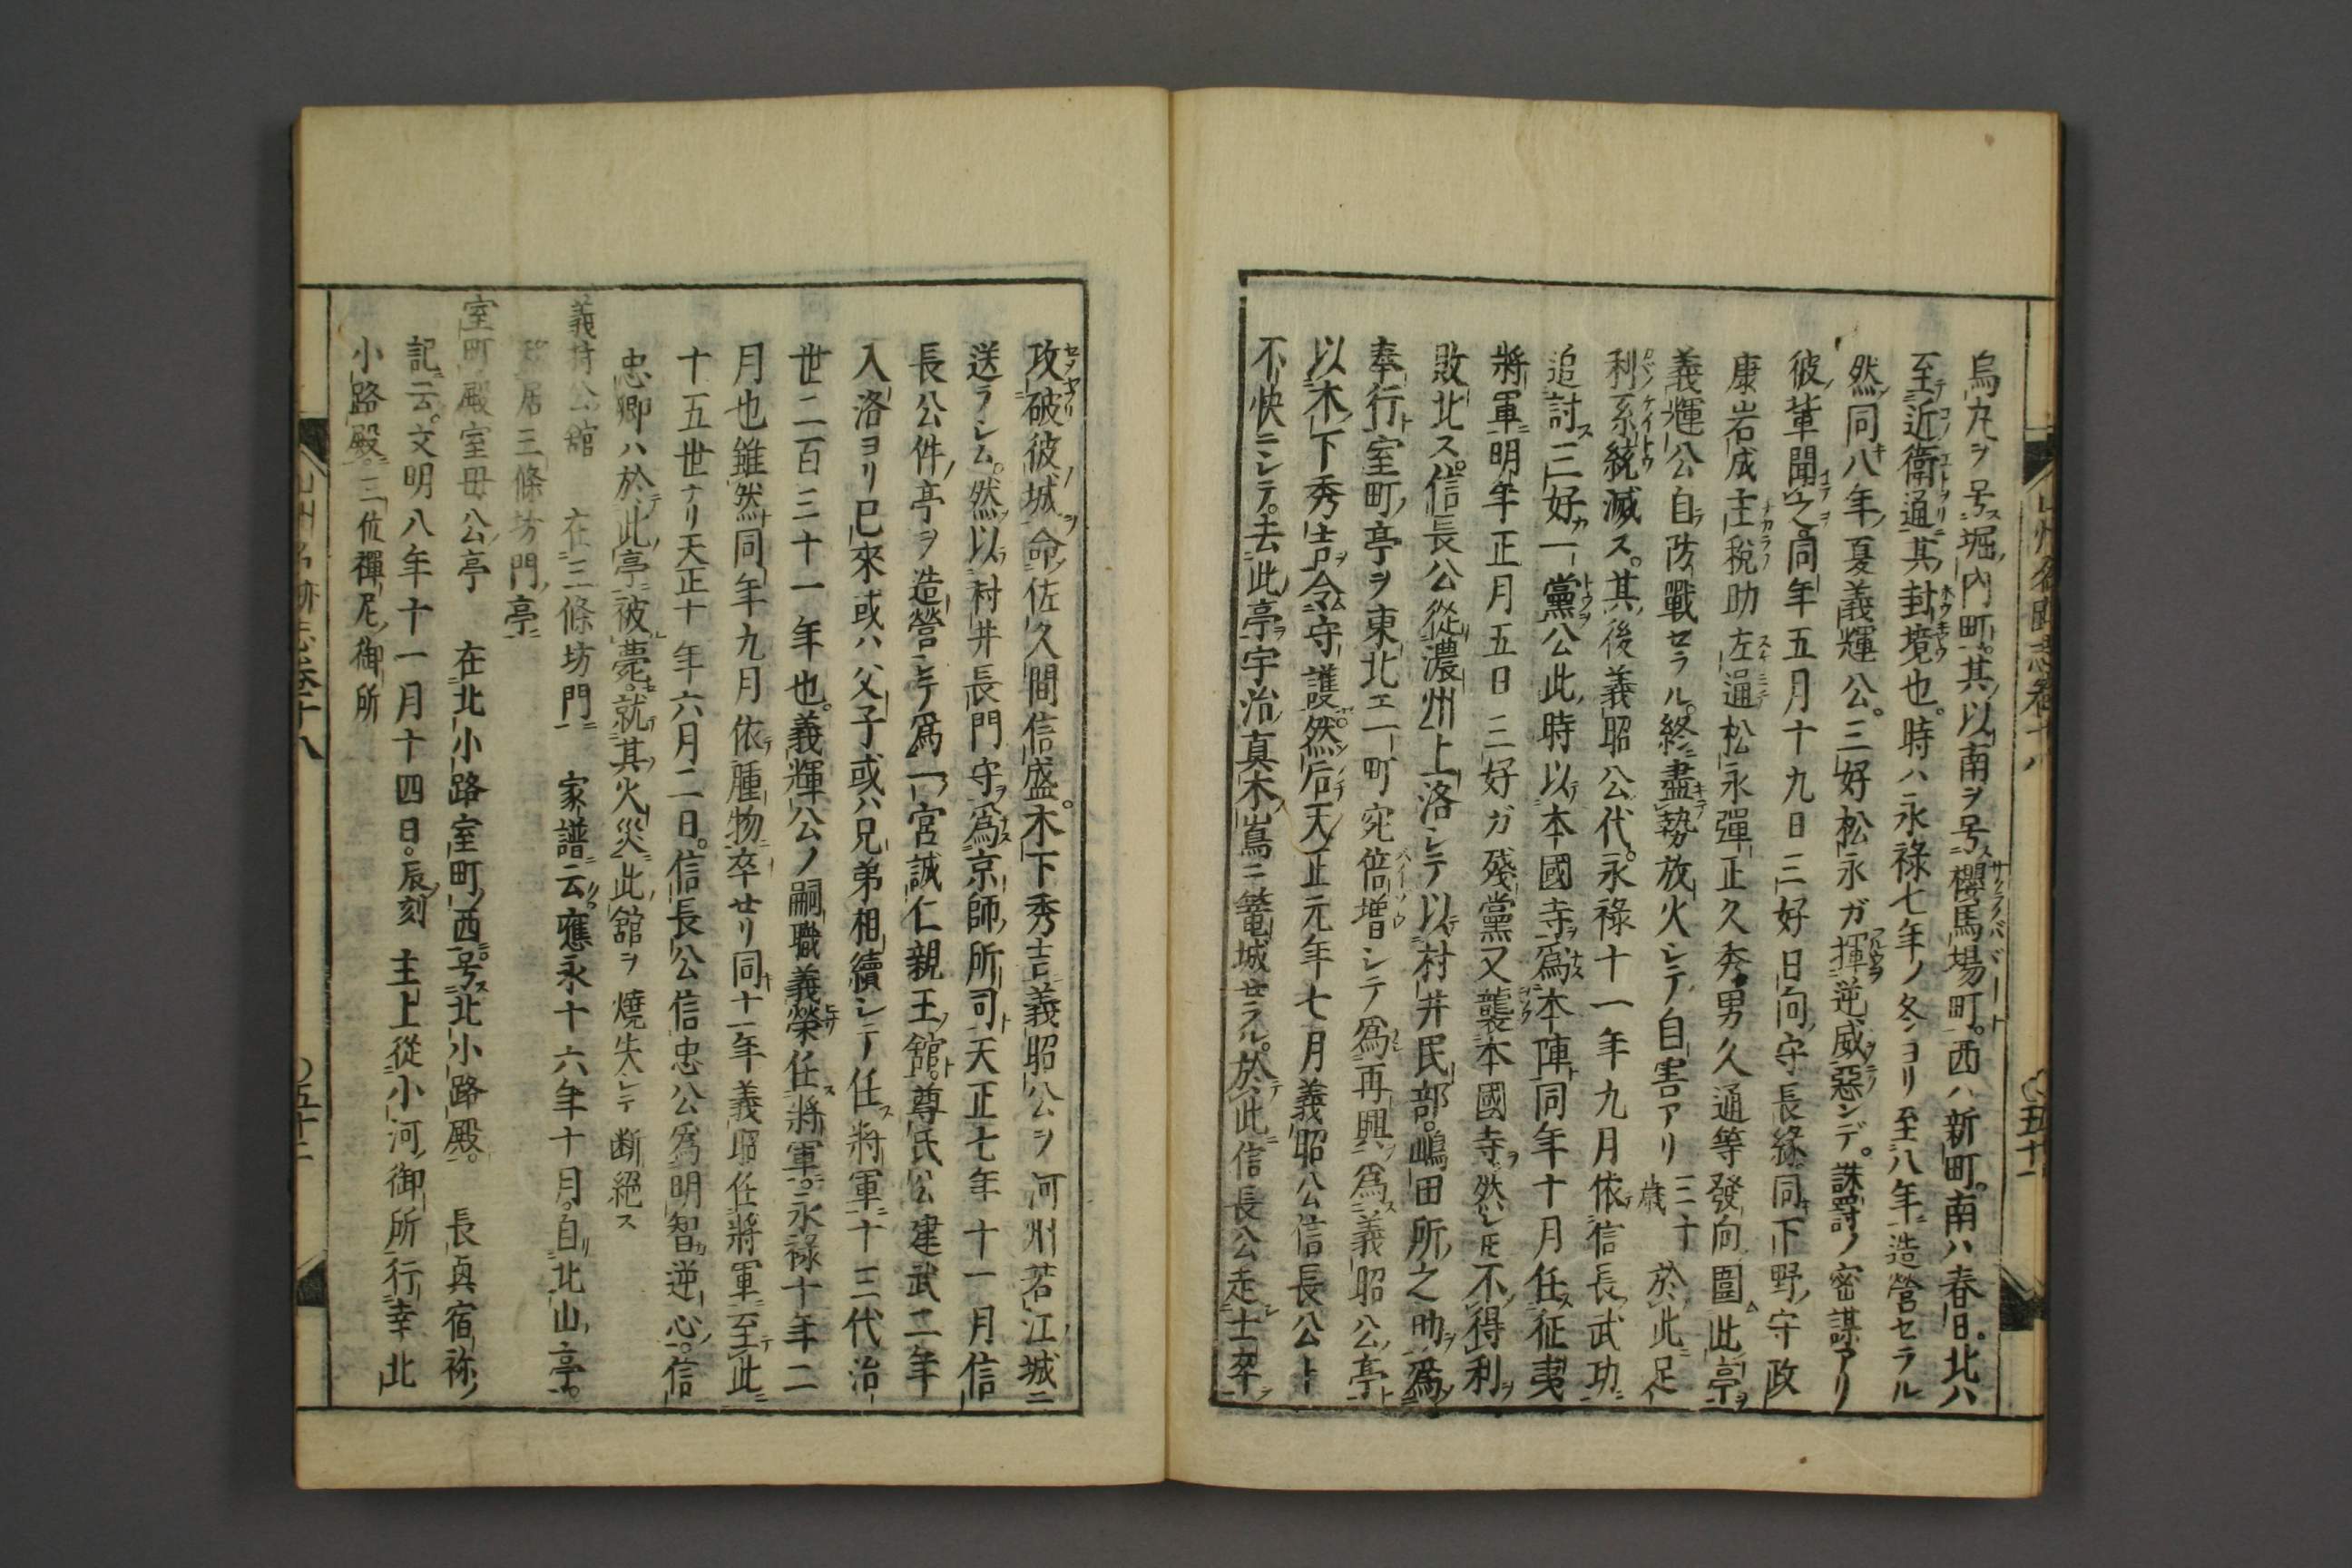 烏丸ヲ号堀内町其以南ヲ号櫻馬場町西ハ新町南ハ春日北ハ
至近衛通其封境也時ハ永禄七年ノ冬ヨリ至八年造營セラル
然同八年夏義輝公三好松永ガ揮逆威惡ンデ誅罸ノ密謀アリ
彼輩聞之同年五月十九日三好日向守長縁同下野守政
康岩成主税助左通松永彈正久秀男久通等發向圍此亭
義輝公自防戰セラル終盡勢放火シテ自害アリ三十歳於此足
利系統滅ス其後義昭公代永禄十一年九月依信長武功
追討三好一黨公此時以本國寺爲本陣同年十月任征夷
將軍明年正月五日三好ガ殘黨又襲本國寺然𪜈不得利
敗北ス信長公從濃州上洛シテ以村井民部嶋田所之助爲
奉行室町亭ヲ東北エ一町宛倍増シテ爲再興爲義昭公亭
以木下秀吉令守護然后天正元年七月義昭公信長公ト
不快ニシテ去此亭宇治真木嶌ニ籠城セラル於此信長公走士卒
攻破彼城命佐久間信盛木下秀吉義昭公ヲ河州若江城ニ
送ラシム然以村井長門守爲京師所司天正七年十一月信
長公件亭ヲ造營シテ爲一宮誠仁親王館尊氏公建武二年
入洛ヨリ已來或ハ父子或ハ兄弟相續シテ任將軍十三代治
世二百三十一年也義輝公ノ嗣職義榮任將軍永禄十年二
月也雖然同年九月依腫物卒せリ同十一年義昭任將軍至此
十五世ナリ天正十年六月二日信長公信忠公爲明智逆心信
忠卿ハ於此亭被薨就其火災此舘ヲ燒失シテ断絶ス
義持公舘 在三條坊門 家譜云應永十六年十月自北山亭
移居三條坊門亭
室町殿室母公亭 在北小路室町西号北小路殿 長興宿祢ノ
記云文明八年十一月十四日辰刻 主上從小河御所行幸北
小路殿三位禪尼御所